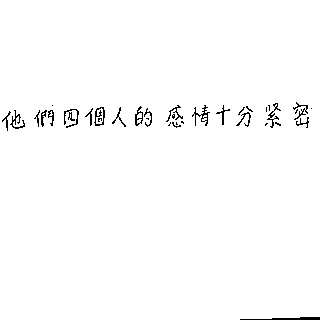 他們四個人的感情十分緊密